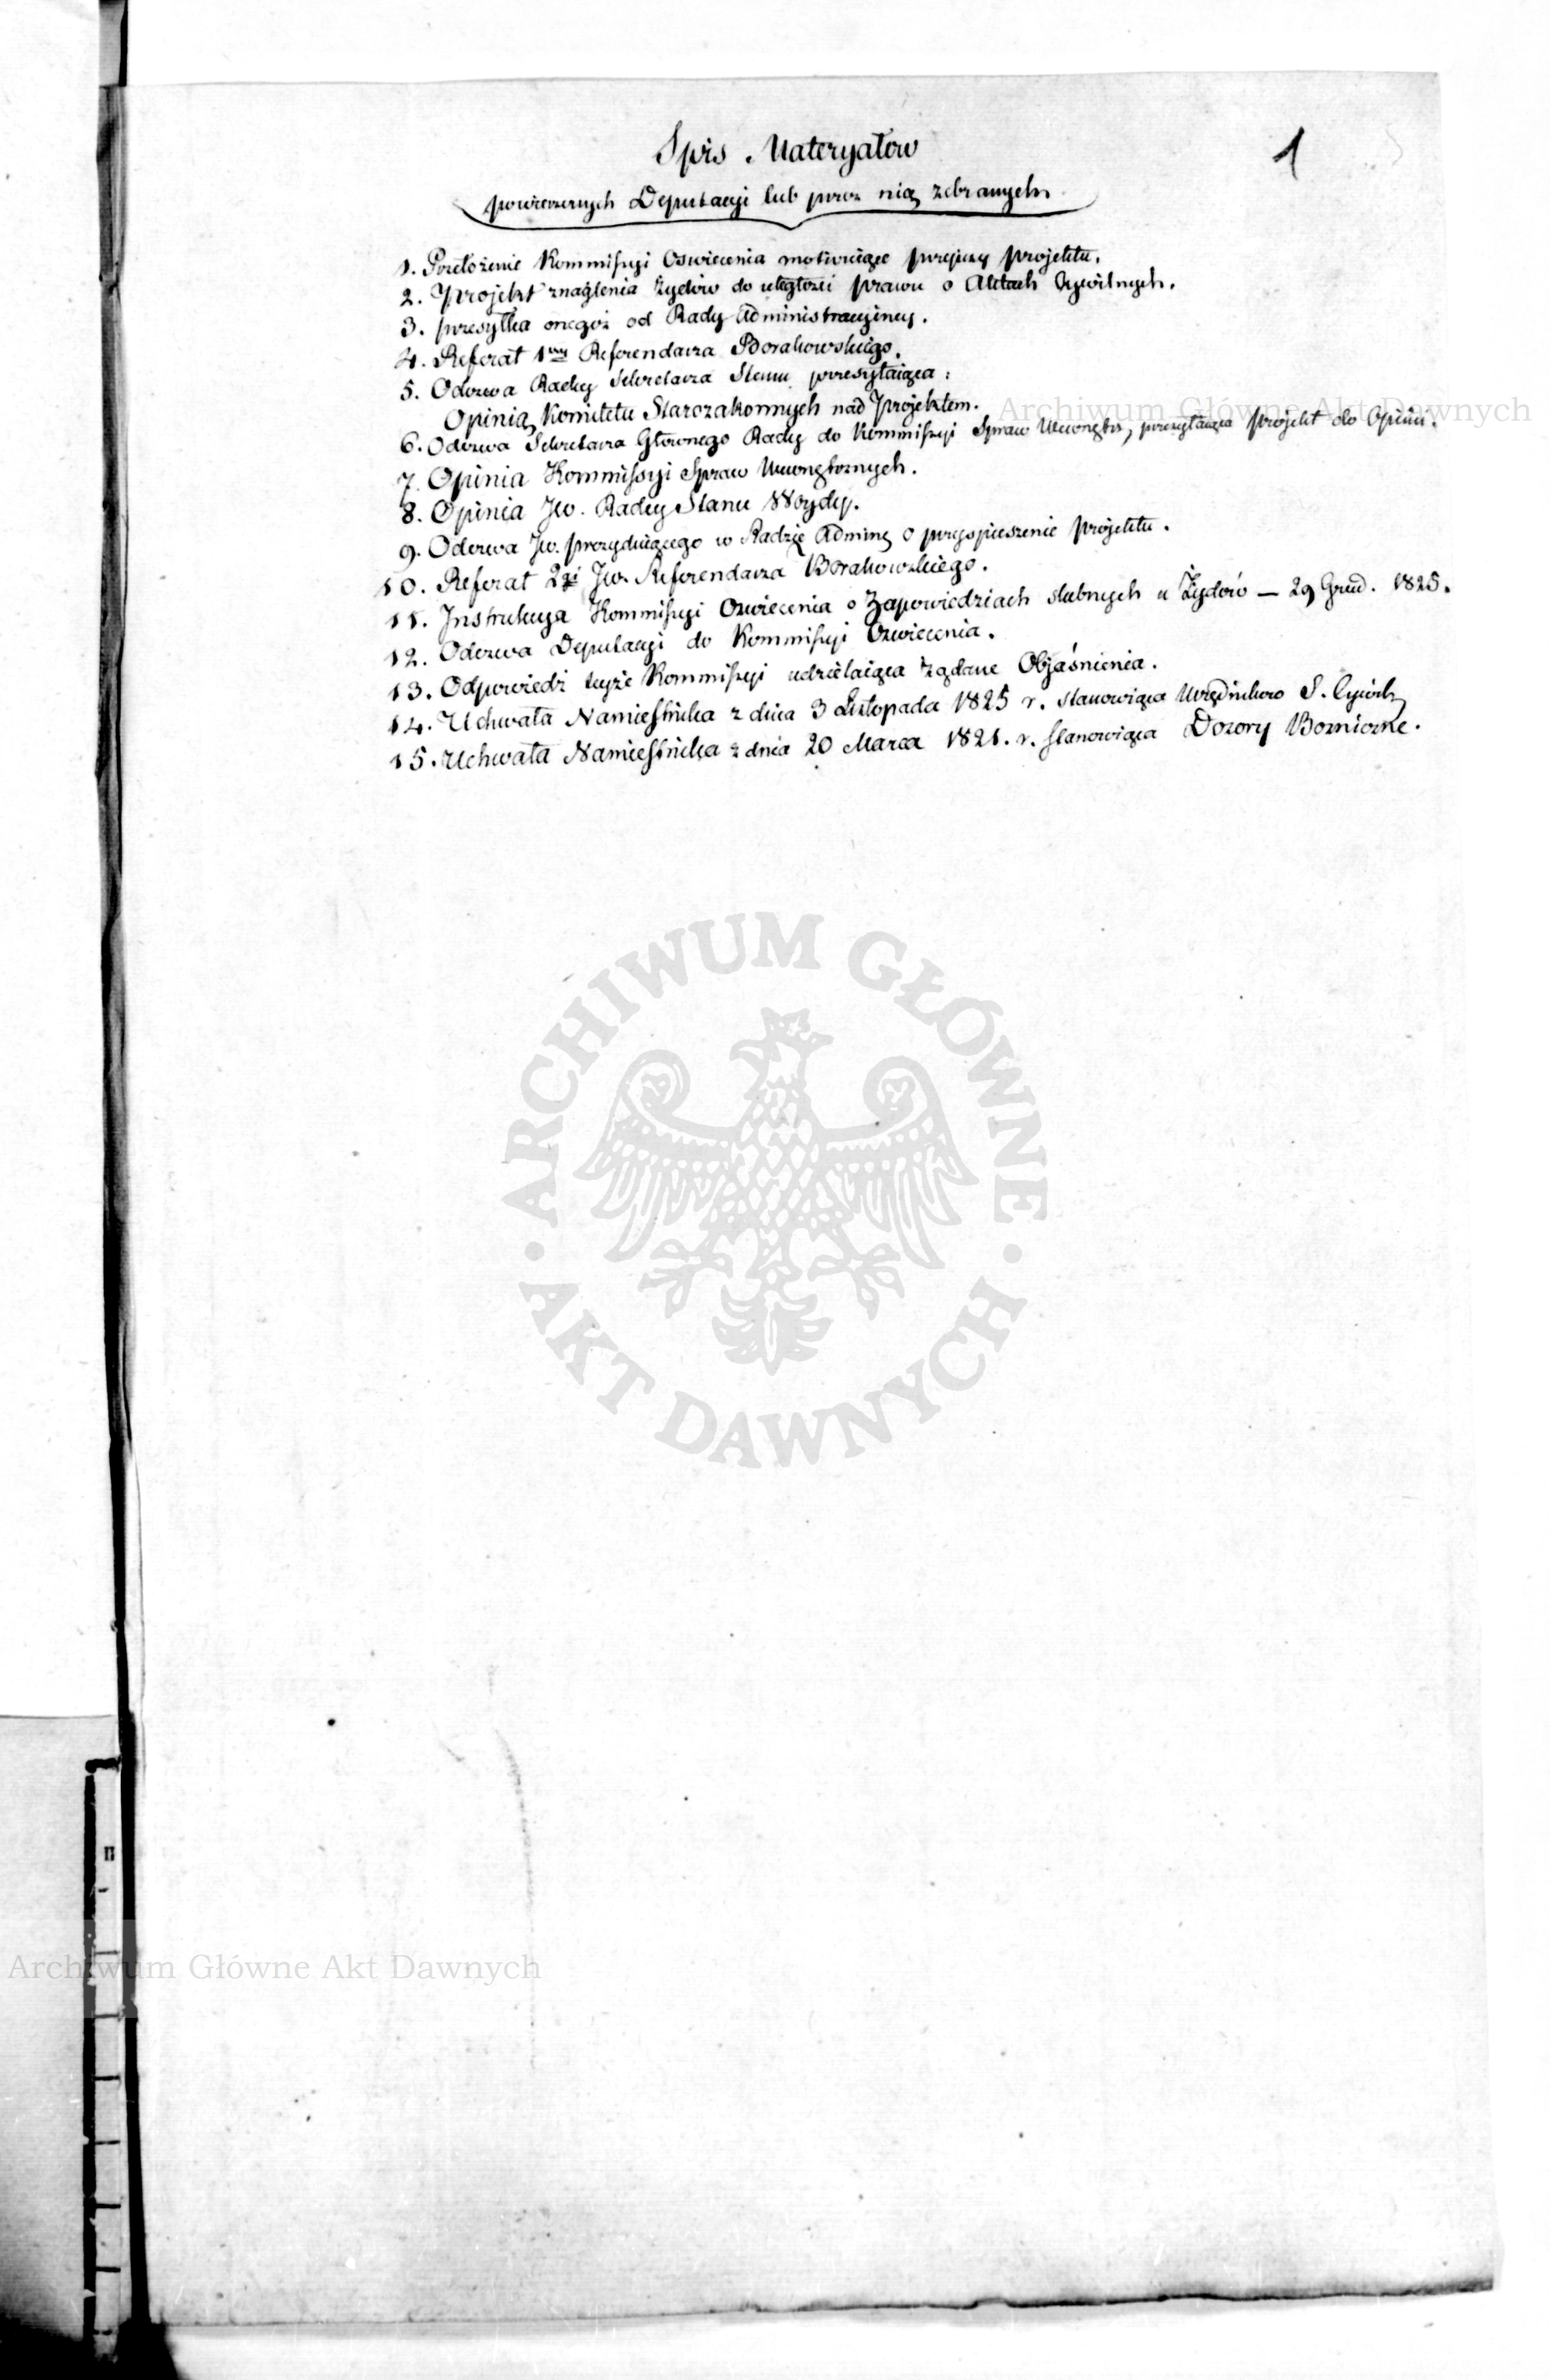 1
Spis Materyałow
powierzonych Deputacyi lub przez nią zebranych
1. Przełożenie Kommissyi Oswiecenia motiwuiące przyczyny projektu.
2. Projekt znaglenia Żydów do uległości prawu o Aktach Cywilnych.
3. przesyłka onegoż od Rady Administracyiney.
4. Referat 1wszy Referendarza Borakowskiego.
5. Odezwa Radcy Sekretarza Stanu przesyłaiąca:
Opinią Komitetu Starozakonnych nad Projektem.
6. Odezwa Sekretarza Głównego Rady do Kommissyi Spraw Wewnętrz, przesyłaiąca projekt do Opinii.
7. Opinia Kommissyi Spraw Wewnętrznych.
8. Opinia Jw. Radcy Stanu Woydy.
9. Odezwa Jw. prezyduiącego w Radzie Adminey o przyspieszenie projektu.
10. Referat 2gi Jw. Referendarza Borakowskiego.
11. Instrukcya Kommissyi Oswiecenia o Zapowiedziach slubnych u Żydów — 29 Grud. 1825.
12. Odezwa Deputacyi do Kommissyi Oswiecenia.
13. Odpowiedź teyże Kommissyi udzielaiąca żądane Objaśnienia.
14. Uchwała Namiestnika z dnia 3 Listopada 1825 r. stanowiąca Urzędników S. Cywil.
15. Uchwała Namiestnika z dnia 20 Marca 1821. r. stanowiąca Dozory Bożniczne.
Archiwum Główne Akt Dawnych
ARCHIWUM GŁÓWNE
AKT DAWNYCH
Archiwum Główne Akt Dawnych